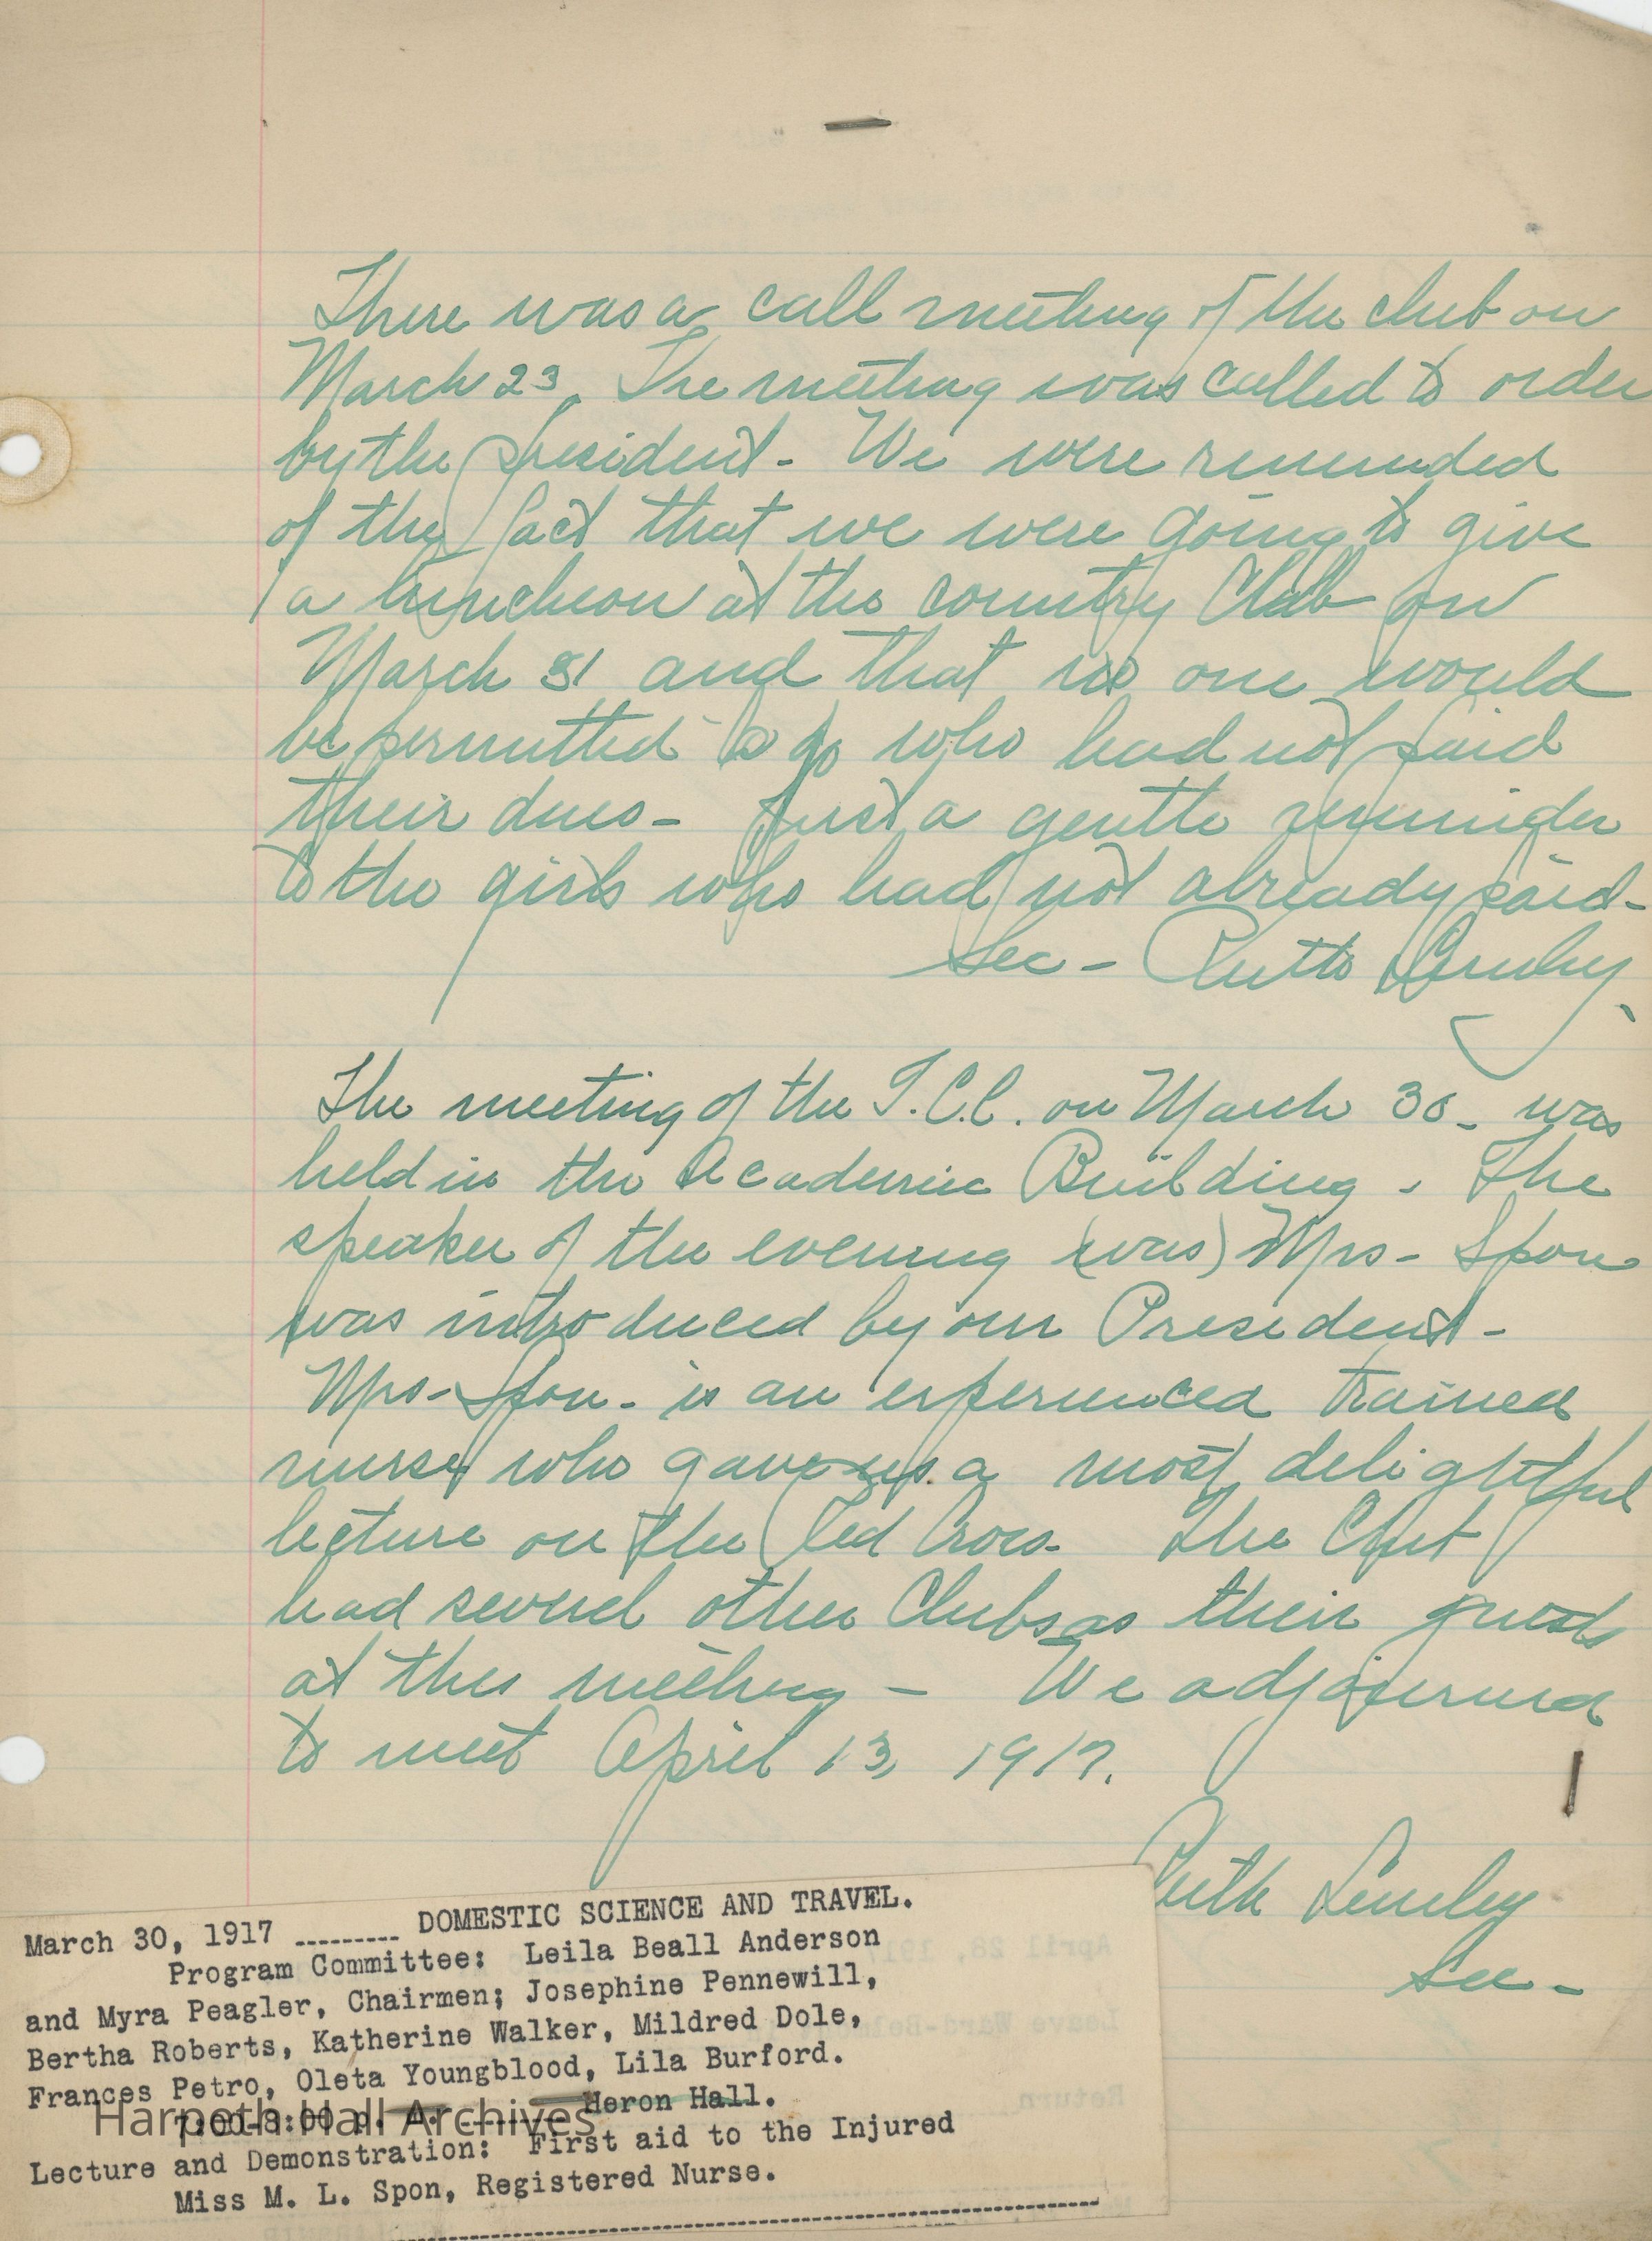 There was a call meeting of the club on
March 23. The meeting was called to order
by the president - We were reminded
of the fact that we were going to give
a luncheon at the country Club on
March 31 and that no one would
be permitted to go who had not paid
their dues - Just a gentle reminder
to the girls who had not already paid -
Sec - Ruth
The meeting of the T.C.C. on March 30 - was
held in the Academic Building. The
speaker of the evening (was) Mrs - Spon
was introduced by our President -
Mrs - Spon - is an experienced trained
nurse, who gave us a most delightful
lecture on the Red Cross - The Club
had several other Clubs as their guests
at this meeting - We adjourned
to meet April 13, 1917.
Ruth
Sec -
March 30, 1917 --------- DOMESTIC SCIENCE AND TRAVEL.
Program Committee: Leila Beall Anderson
and Myra Peagler, Chairmen; Josephine Pennewill,
Bertha Roberts, Katherine Walker, Mildred Dole,
Frances Petro, Oleta Youngblood, Lila Burford.
7:00-8:00 p. m. -------- Heron Hall.
Harpeth Hall Archives
Lecture and Demonstration: First aid to the Injured
Miss M. L. Spon, Registered Nurse.